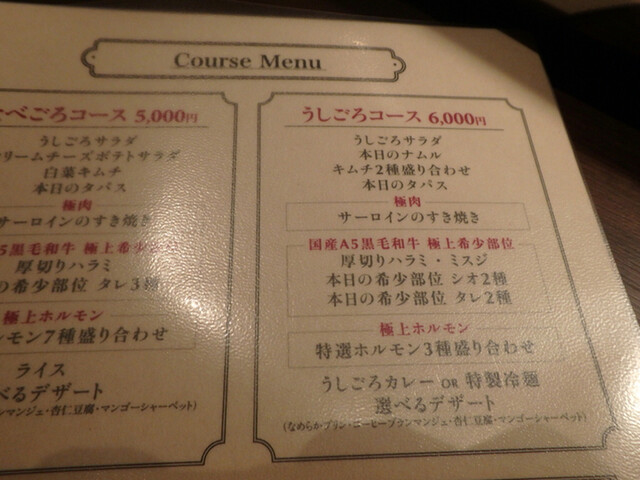 Course Menu
べごろコース 5,000円
うしごろサラダ
リームチーズポテトサラダ
白菜キムチ
本日のタパス
極肉
サーロインのすき焼き
5黒毛和牛 極上希少
厚切りハラミ
の希少部位 タレ3種
極上ホルモン
ルモン7種盛り合わせ
ライス
べるデザート
ンマンジェ・杏仁豆腐・マンゴーシャーベット)
うしごろコース 6,000円
うしごろサラダ
本日のナムル
キムチ2種盛り合わせ
本日のタパス
極肉
サーロインのすき焼き
国産A5黒毛和牛 極上希少部位
厚切りハラミ・ミスジ
本日の希少部位 シオ2種
本日の希少部位 タレ2種
極上ホルモン
特選ホルモン3種盛り合わせ
うしごろカレー OR 特製冷麺
選べるデザート
(なめらかプリン・コーヒーブランマンジェ・杏仁豆腐・マンゴーシャーベット)